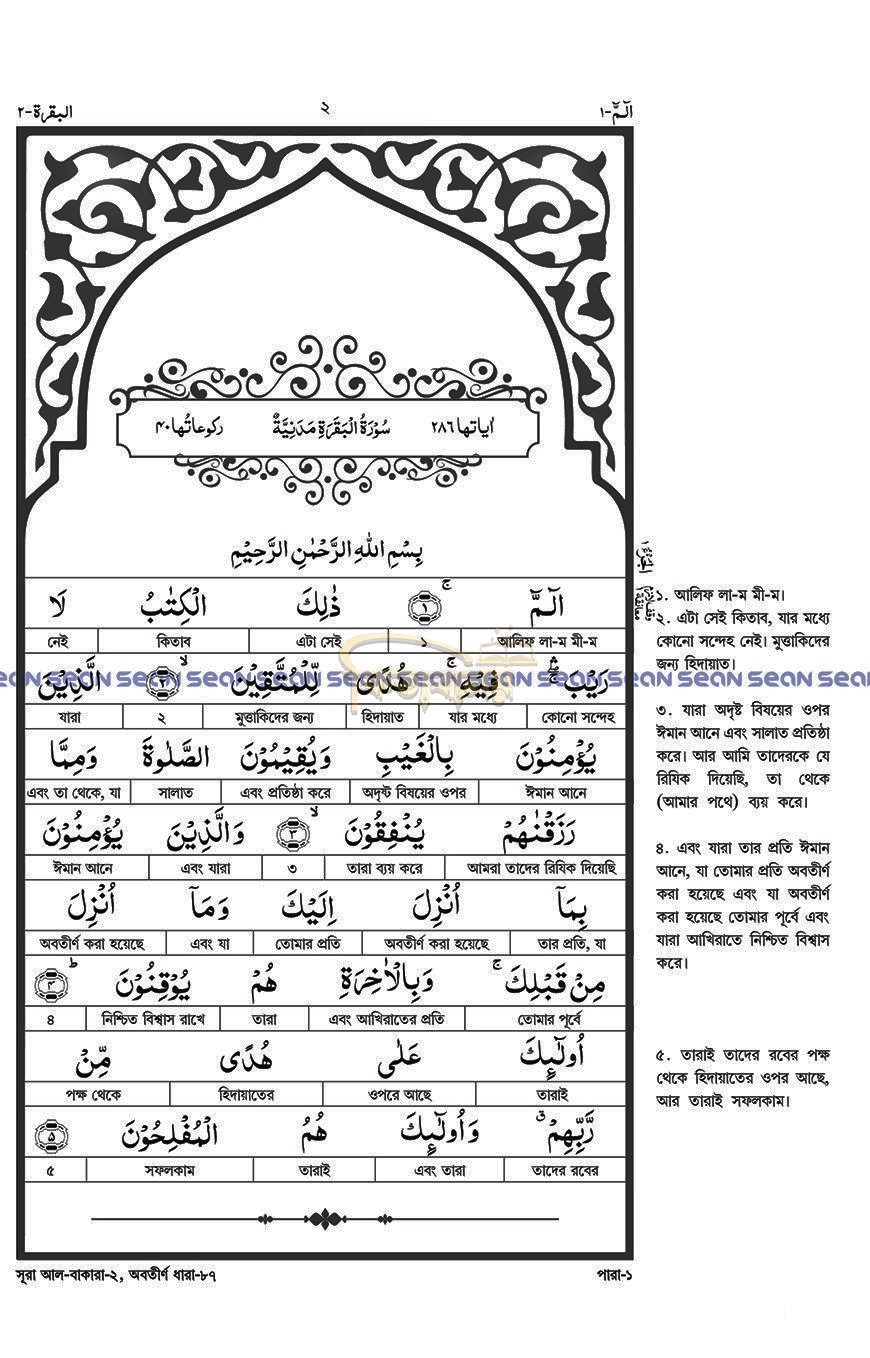 البقرة-٢ ٢ الٓمّٓ-١
اٰياتها ٢٨٦ سُوْرَةُ الْبَقَرَةِ مَدَنِيَّةٌ ركوعاتُها ٤٠
بِسْمِ اللهِ الرَّحْمٰنِ الرَّحِيْمِ
الٓمّٓ ۚ ١ ذٰلِكَ الْكِتٰبُ لَا
আলিফ লা-ম মী-ম ১ এটা সেই কিতাব নেই
رَيْبَ ۛ فِيْهِ ۚ هُدًى لِّلْمُتَّقِيْنَ ۙ ٢ الَّذِيْنَ
কোনো সন্দেহ যার মধ্যে হিদায়াত মুত্তাকিদের জন্য ২ যারা
يُؤْمِنُوْنَ بِالْغَيْبِ وَيُقِيْمُوْنَ الصَّلٰوةَ وَمِمَّا
ঈমান আনে অদৃষ্ট বিষয়ের ওপর এবং প্রতিষ্ঠা করে সালাত এবং তা থেকে, যা
رَزَقْنٰهُمْ يُنْفِقُوْنَ ۙ ٣ وَالَّذِيْنَ يُؤْمِنُوْنَ
আমরা তাদের রিযিক দিয়েছি তারা ব্যয় করে ৩ এবং যারা ঈমান আনে
بِمَآ اُنْزِلَ اِلَيْكَ وَمَآ اُنْزِلَ
তার প্রতি, যা অবতীর্ণ করা হয়েছে তোমার প্রতি এবং যা অবতীর্ণ করা হয়েছে
مِنْ قَبْلِكَ ۚ وَبِالْاٰخِرَةِ هُمْ يُوْقِنُوْنَ ؕ ٤
তোমার পূর্বে এবং আখিরাতের প্রতি তারা নিশ্চিত বিশ্বাস রাখে ৪
اُولٰٓئِكَ عَلٰى هُدًى مِّنْ
তারাই ওপরে আছে হিদায়াতের পক্ষ থেকে
رَّبِّهِمْ ۗ وَاُولٰٓئِكَ هُمُ الْمُفْلِحُوْنَ ٥
তাদের রবের এবং তারা তারাই সফলকাম ৫
১. আলিফ লা-ম মী-ম।
২. এটা সেই কিতাব, যার মধ্যে
কোনো সন্দেহ নেই। মুত্তাকিদের
জন্য হিদায়াত।
৩. যারা অদৃষ্ট বিষয়ের ওপর
ঈমান আনে এবং সালাত প্রতিষ্ঠা
করে। আর আমি তাদেরকে যে
রিযিক দিয়েছি, তা থেকে
(আমার পথে) ব্যয় করে।
৪. এবং যারা তার প্রতি ঈমান
আনে, যা তোমার প্রতি অবতীর্ণ
করা হয়েছে এবং যা অবতীর্ণ
করা হয়েছে তোমার পূর্বে এবং
যারা আখিরাতে নিশ্চিত বিশ্বাস
করে।
৫. তারাই তাদের রবের পক্ষ
থেকে হিদায়াতের ওপর আছে,
আর তারাই সফলকাম।
সূরা আল-বাকারা-২, অবতীর্ণ ধারা-৮৭ পারা-১
sean sean sean sean sean sean sean sean sean